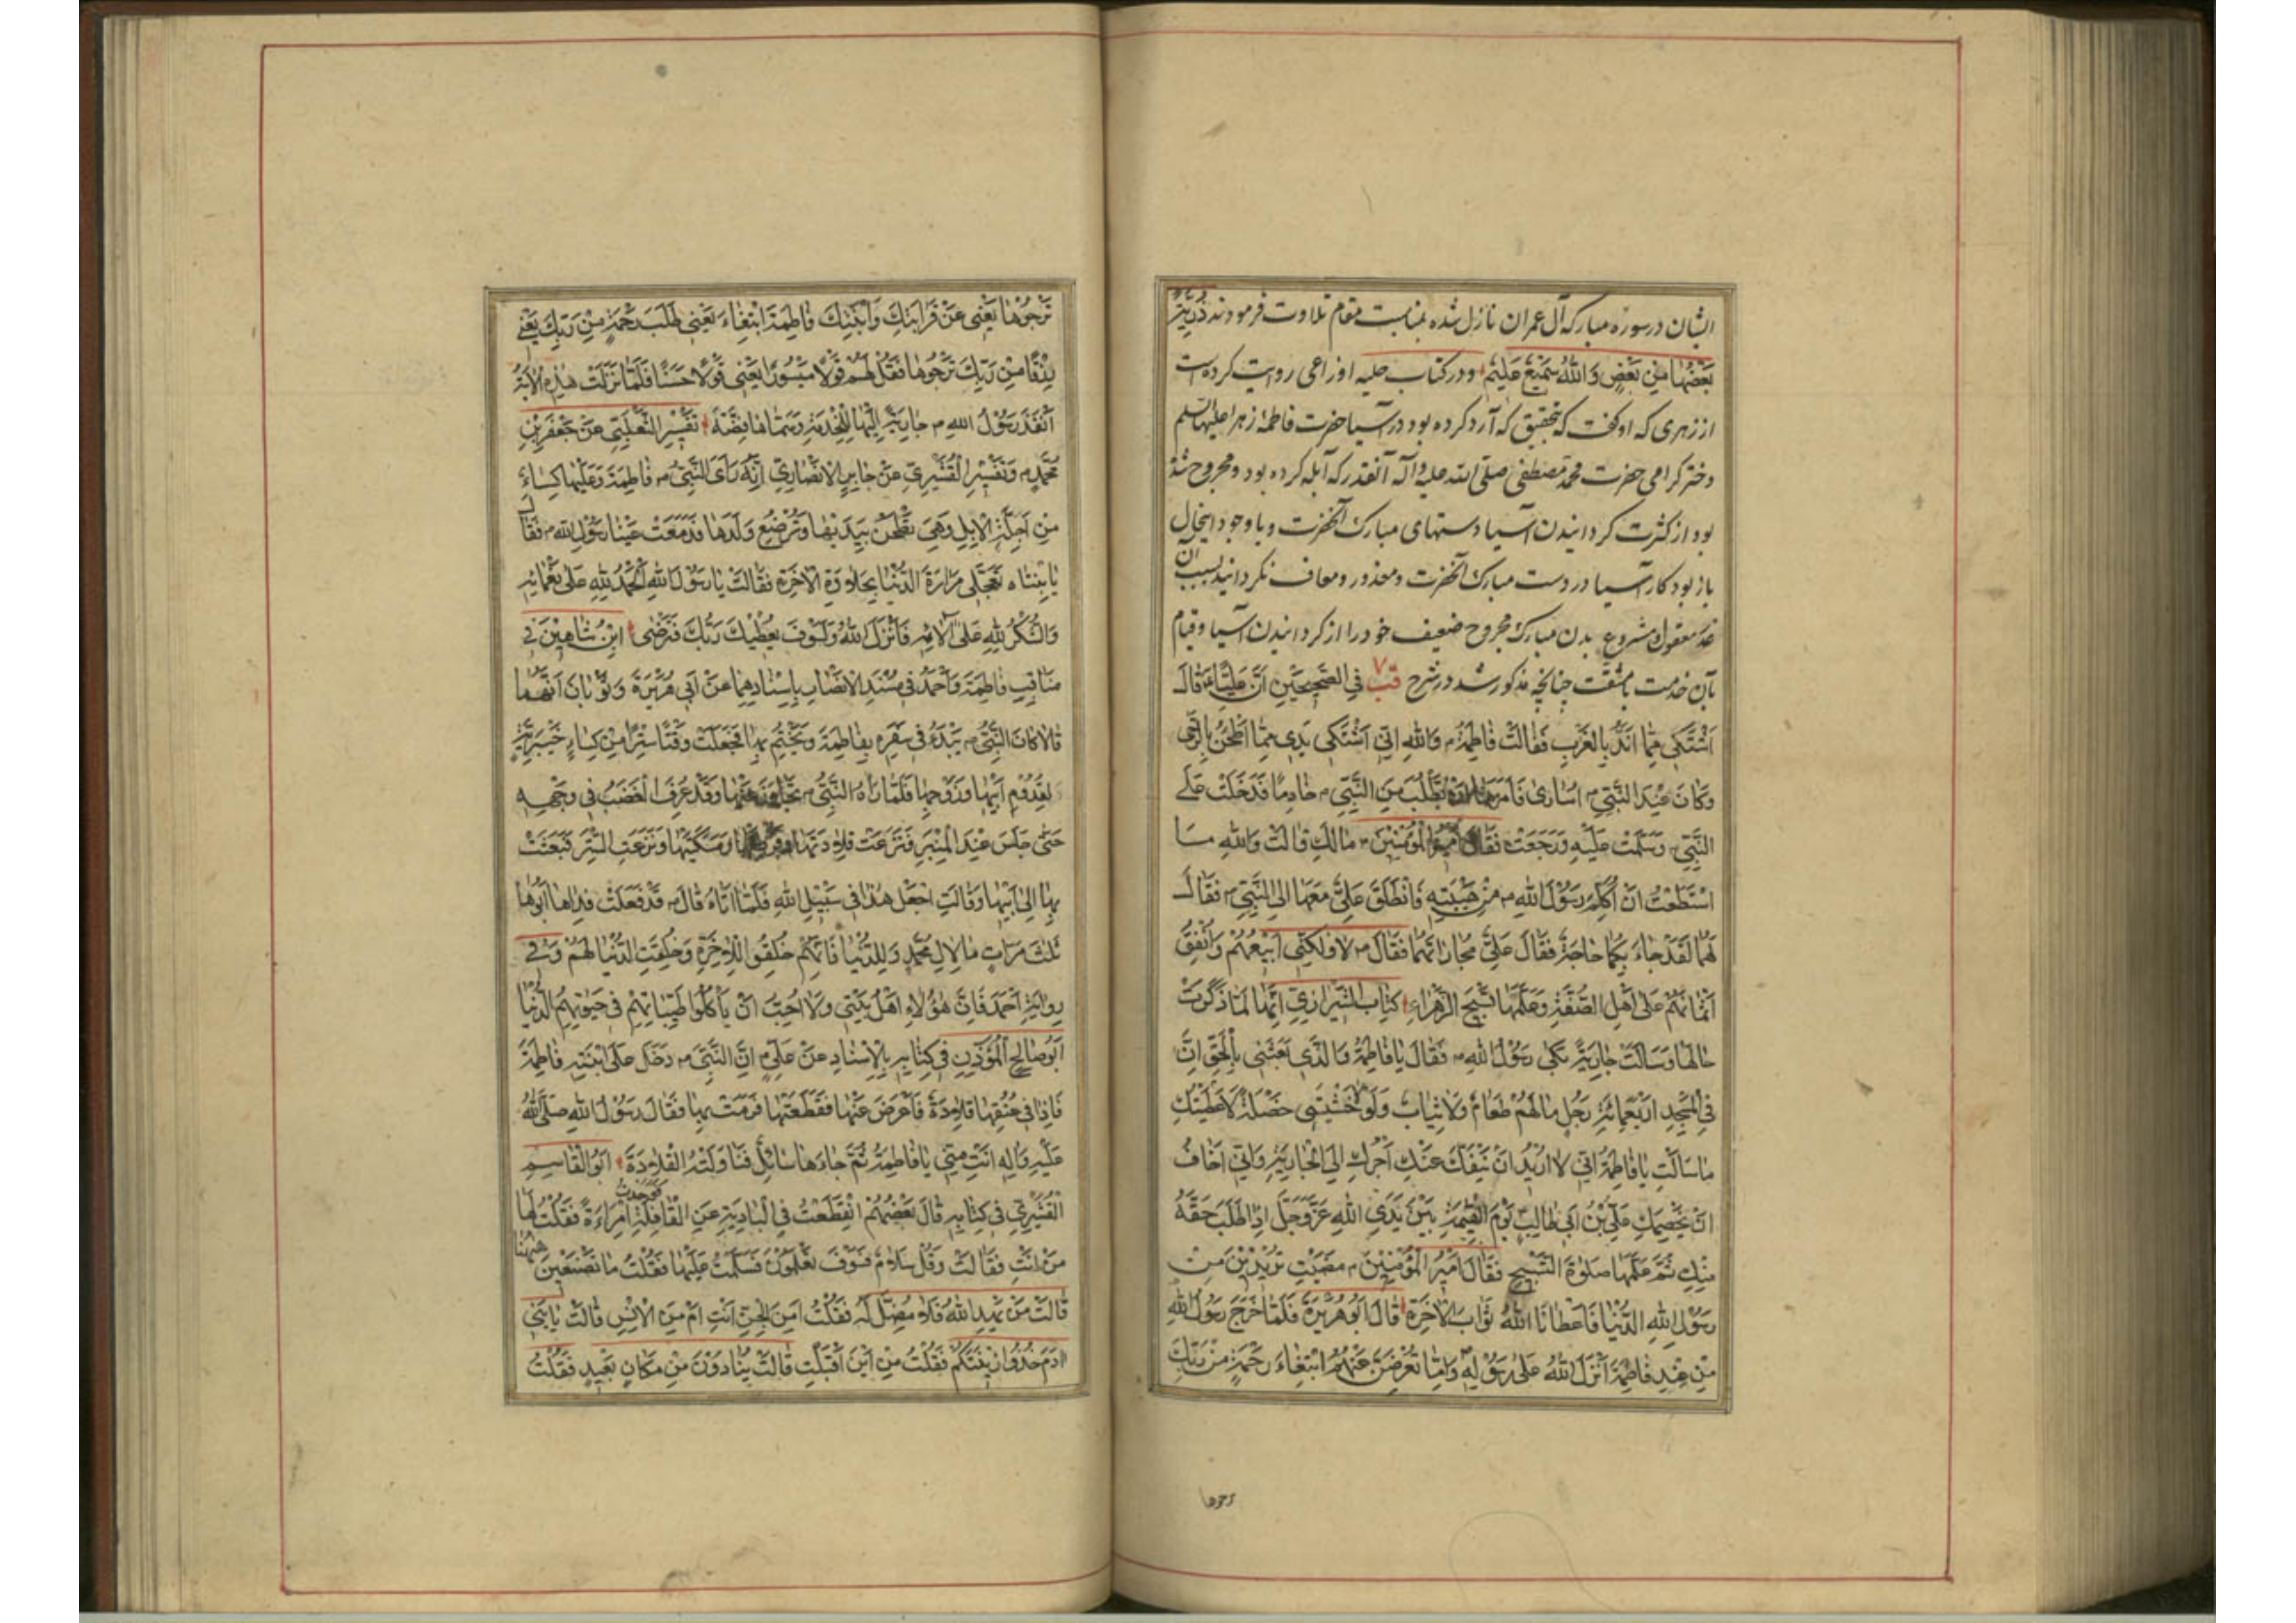 الشان در سوره مبارکه آل عمران نازل شده بمناسبت مقام تلاوت فرمودند ذُرِّيَّةً
بَعْضُهَا مِنْ بَعْضٍ وَاللّٰهُ سَمِيعٌ عَلِيمٌ و در کتاب حلیه اوزاعی روایت کرده است
از زهری که او گفت که بتحقیق که آرد کرده بود در آسیا حضرت فاطمه زهرا علیها السلم
دختر کرامی حضرت محمد مصطفی صلی الله علیه وآله آنقدر که آبله کرده بود و مجروح شده
بود از کثرت کردانیدن آسیا دستهای مبارک آنحضرت و با وجود اینحال
باز بود کار آسیا در دست مبارک آنحضرت و معذور و معاف نکردانید بسبب آن
عذر معقول مشروع بدن مبارک مجروح ضعیف خود را از کردانیدن آسیا و قیام
بآن خدمت با مشقت چنانچه مذکور شد در شرح قب ٧ فِي الصَّحِيحَيْنِ اَنَّ عَلِيًّا ع قَالَ
اَشْتَكِي مِمَّا اَنْدَءُ بِالْغَرْبِ فَقَالَتْ فَاطِمَةُ وَاللّٰهِ اِنِّي اَشْتَكِي يَدِي مِمَّا اَطْحَنُ بِالرَّحٰى
وَكَانَ عِنْدَ النَّبِيِّ ص اُسَارٰى فَاَمَرَهَا اَنْ تَطْلُبَ مِنَ النَّبِيِّ ص خَادِمًا فَدَخَلَتْ عَلَى
النَّبِيِّ وَسَلَّمَتْ عَلَيْهِ وَرَجَعَتْ فَقَالَ اَمِيرُ الْمُؤْمِنِينَ مَا لَكِ قَالَتْ وَاللّٰهِ مَا
اسْتَطَعْتُ اَنْ اُكَلِّمَ رَسُولَ اللّٰهِ ص مِنْ هَيْبَتِهِ فَانْطَلَقَ عَلِيٌّ مَعَهَا اِلَى النَّبِيِّ ص فَقَالَ
لَهُمَا لَقَدْ جَاءَ بِكُمَا حَاجَةٌ فَقَالَ عَلِيٌّ مُجَارَاتُهُمَا فَقَالَ ص لَا وَلٰكِنِّي اَبِيعُهُمْ وَاُنْفِقُ
اَثْمَانَهُمْ عَلٰى اَهْلِ الصُّفَّةِ وَعَلَّمَهَا تَسْبِيحَ الزَّهْرَاءِ كِتَابُ الشِّيرَازِيِّ اِنَّهَا لَمَّا ذَكَرَتْ
حَالَهَا وَسَاَلَتْ جَارِيَةً بَكٰى رَسُولُ اللّٰهِ ص فَقَالَ يَا فَاطِمَةُ وَالَّذِي بَعَثَنِي بِالْحَقِّ اِنَّ
فِي الْمَسْجِدِ اَرْبَعَمِائَةِ رَجُلٍ مَا لَهُمْ طَعَامٌ وَلَا ثِيَابٌ وَلَوْلَا خَشْيَتِي خَصْلَةً لَاَعْطَيْتُكِ
مَا سَاَلْتِ يَا فَاطِمَةُ اِنِّي لَا اُرِيدُ اَنْ يَنْفَكَّ عَنْكِ اَجْرُكِ اِلَى الْجَارِيَةِ وَاِنِّي اَخَافُ
اَنْ يَخْصِمَكِ عَلِيُّ بْنُ اَبِي طَالِبٍ يَوْمَ الْقِيٰمَةِ بَيْنَ يَدَيِ اللّٰهِ عَزَّ وَجَلَّ اِذَا طَلَبَ حَقَّهُ
مِنْكِ ثُمَّ عَلَّمَهَا صَلٰوةَ التَّسْبِيحِ فَقَالَ اَمِيرُ الْمُؤْمِنِينَ مَضَيْتِ تُرِيدِينَ مِنْ
رَسُولِ اللّٰهِ الدُّنْيَا فَاَعْطَانَا اللّٰهُ ثَوَابَ الْاٰخِرَةِ قَالَ اَبُو هُرَيْرَةَ فَلَمَّا خَرَجَ رَسُولُ اللّٰهِ
مِنْ عِنْدِ فَاطِمَةَ اَنْزَلَ اللّٰهُ عَلٰى رَسُولِهِ وَاِمَّا تُعْرِضَنَّ عَنْهُمُ ابْتِغَاءَ رَحْمَةٍ مِنْ رَبِّكَ
ترجوها
تَرْجُوهَا يَعْنِي عَنْ قَرَابَتِكَ وَابْنَتِكَ فَاطِمَةَ ابْتِغَاءَ يَعْنِي طَلَبَ رَحْمَةٍ مِنْ رَبِّكَ يَعْنِي
رِزْقًا مِنْ رَبِّكَ تَرْجُوهَا فَقُلْ لَهُمْ قَوْلًا مَيْسُورًا يَعْنِي قَوْلًا حَسَنًا فَلَمَّا نَزَلَتْ هٰذِهِ الْاٰيَةُ
اَنْفَذَ رَسُولُ اللّٰهِ ص جَارِيَةً اِلَيْهَا لِلْخِدْمَةِ وَسَمَّاهَا فِضَّةَ تَفْسِيرُ الثَّعْلَبِيِّ عَنْ جَعْفَرِ بْنِ
مُحَمَّدٍ وَتَفْسِيرِ الْقُشَيْرِيِّ عَنْ جَابِرٍ الْاَنْصَارِيِّ اِنَّهُ رَاَى النَّبِيُّ ص فَاطِمَةَ وَعَلَيْهَا كِسَاءٌ
مِنْ اَجِلَّةِ الْاِبِلِ وَهِيَ تَطْحَنُ بِيَدَيْهَا وَتُرْضِعُ وَلَدَهَا فَدَمَعَتْ عَيْنَا رَسُولِ اللّٰهِ ص فَقَالَ
يَا بِنْتَاه تَعَجَّلِي مَرَارَةَ الدُّنْيَا بِحَلَاوَةِ الْاٰخِرَةِ فَقَالَتْ يَا رَسُولَ اللّٰهِ اَلْحَمْدُ لِلّٰهِ عَلٰى نَعْمَائِهِ
وَالشُّكْرُ لِلّٰهِ عَلٰى اٰلَائِهِ فَاَنْزَلَ اللّٰهُ وَلَسَوْفَ يُعْطِيكَ رَبُّكَ فَتَرْضٰى ابْنُ شَاهِينَ فِي
مَنَاقِبِ فَاطِمَةَ وَاَحْمَدُ فِي مُسْنَدِ الْاَنْصَارِ بِاِسْنَادِهِمَا عَنْ اَبِي هُرَيْرَةَ وَثَوْبَانَ اَنَّهُمَا
قَالَا كَانَ النَّبِيُّ ص يَبْدَءُ فِي سَفَرِهِ بِفَاطِمَةَ وَيَخْتِمُ بِهَا فَجَعَلَتْ وَقْتًا سِتْرًا مِنْ كِسَاءٍ خَيْبَرِيَّةٍ
لِقُدُومِ اَبِيهَا وَزَوْجِهَا فَلَمَّا رَاٰهُ النَّبِيُّ ص تَجَاوَزَ عَنْهَا وَقَدْ عُرِفَ الْغَضَبُ فِي وَجْهِهِ
حَتّٰى جَلَسَ عِنْدَ الْمِنْبَرِ فَنَزَعَتْ قِلَادَتَهَا وَقُرْطَيْهَا وَمَسَكَتَيْهَا وَنَزَعَتِ السِّتْرَ فَبَعَثَتْ
بِهَا اِلٰى اَبِيهَا وَقَالَتِ اجْعَلْ هٰذَا فِي سَبِيلِ اللّٰهِ فَلَمَّا اَتَاهُ قَالَ ص قَدْ فَعَلَتْ فِدَاهَا اَبُوهَا
ثَلٰثَ مَرَّاتٍ مَا لِاٰلِ مُحَمَّدٍ وَلِلدُّنْيَا فَاِنَّهُمْ خُلِقُوا لِلْاٰخِرَةِ وَخُلِقَتِ الدُّنْيَا لَهُمْ وَفِي
رِوَايَةِ اَحْمَدَ فَاِنَّ هٰؤُلَاءِ اَهْلُ بَيْتِي وَلَا اُحِبُّ اَنْ يَاْكُلُوا طَيِّبَاتِهِمْ فِي حَيٰوتِهِمُ الدُّنْيَا
اَبُو صَالِحٍ الْمُؤَذِّنِ فِي كِتَابِهِ بِالْاِسْنَادِ عَنْ عَلِيٍّ اِنَّ النَّبِيَّ ص دَخَلَ عَلَى ابْنَتِهِ فَاطِمَةَ
فَاِذَا فِي عُنُقِهَا قِلَادَةٌ فَاَعْرَضَ عَنْهَا فَقَطَعَتْهَا فَرَمَتْ بِهَا فَقَالَ رَسُولُ اللّٰهِ صَلَّى اللّٰهُ
عَلَيْهِ وَاٰلِهِ اَنْتِ مِنِّي يَا فَاطِمَةُ ثُمَّ جَاءَهَا سَائِلٌ فَنَاوَلَتْهُ الْقِلَادَةَ اَبُو الْقَاسِمِ
الْقُشَيْرِيُّ فِي كِتَابِهِ قَالَ بَعْضُهُمُ انْقَطَعْتُ فِي الْبَادِيَةِ عَنِ الْقَافِلَةِ فَوَجَدْتُ امْرَاَةً فَقُلْتُ لَهَا
مَنْ اَنْتِ فَقَالَتْ وَقُلْ سَلَامٌ فَسَوْفَ تَعْلَمُونَ فَسَلَّمْتُ عَلَيْهَا فَقُلْتُ مَا تَصْنَعِينَ هٰهُنَا
قَالَتْ مَنْ يَهْدِ اللّٰهُ فَلَا مُضِلَّ لَهُ فَقُلْتُ اَمِنَ الْجِنِّ اَنْتِ اَمْ مِنَ الْاِنْسِ قَالَتْ يَا بَنِي
اٰدَمَ خُذُوا زِينَتَكُمْ فَقُلْتُ مِنْ اَيْنَ اَقْبَلْتِ قَالَتْ يُنَادَوْنَ مِنْ مَكَانٍ بَعِيدٍ فَقُلْتُ